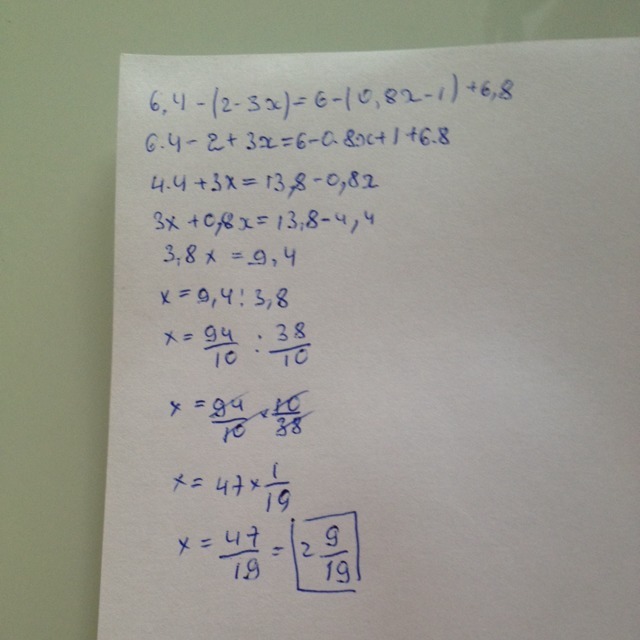 6,4-(2-3x)=6-(0,8x-1)+6,8
6.4-2+3x=6-0.8x+1+6.8
4.4+3x=13,8-0,8x
3x+0,8x=13,8-4,4
3,8x=9,4
x=9,4:3,8
x=94/10:38/10
x=94/10×10/38
x=47×1/19
x=47/19=2 9/19